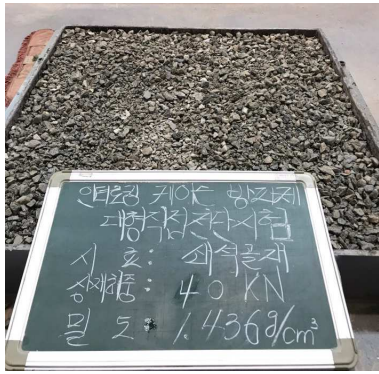 인터로킹 케이슨 방파제
대형직접전단시험
시 료 : 쇄석골재
상재하중 : 40 KN
밀 도 : 1.436g/cm³